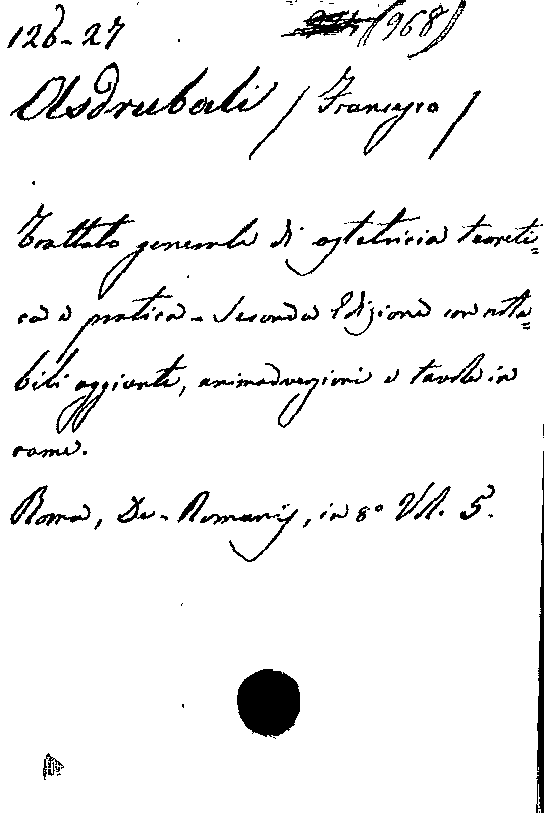 126-27 (968)
Asdrubali / Francesco /
Trattato generale di ostetricia teoreti=
ca e pratica - Seconda Edizione con nota=
bili aggiunte, animadversioni e tavole in
rame.
Roma, De-Romanis, in 8° Vol. 5.